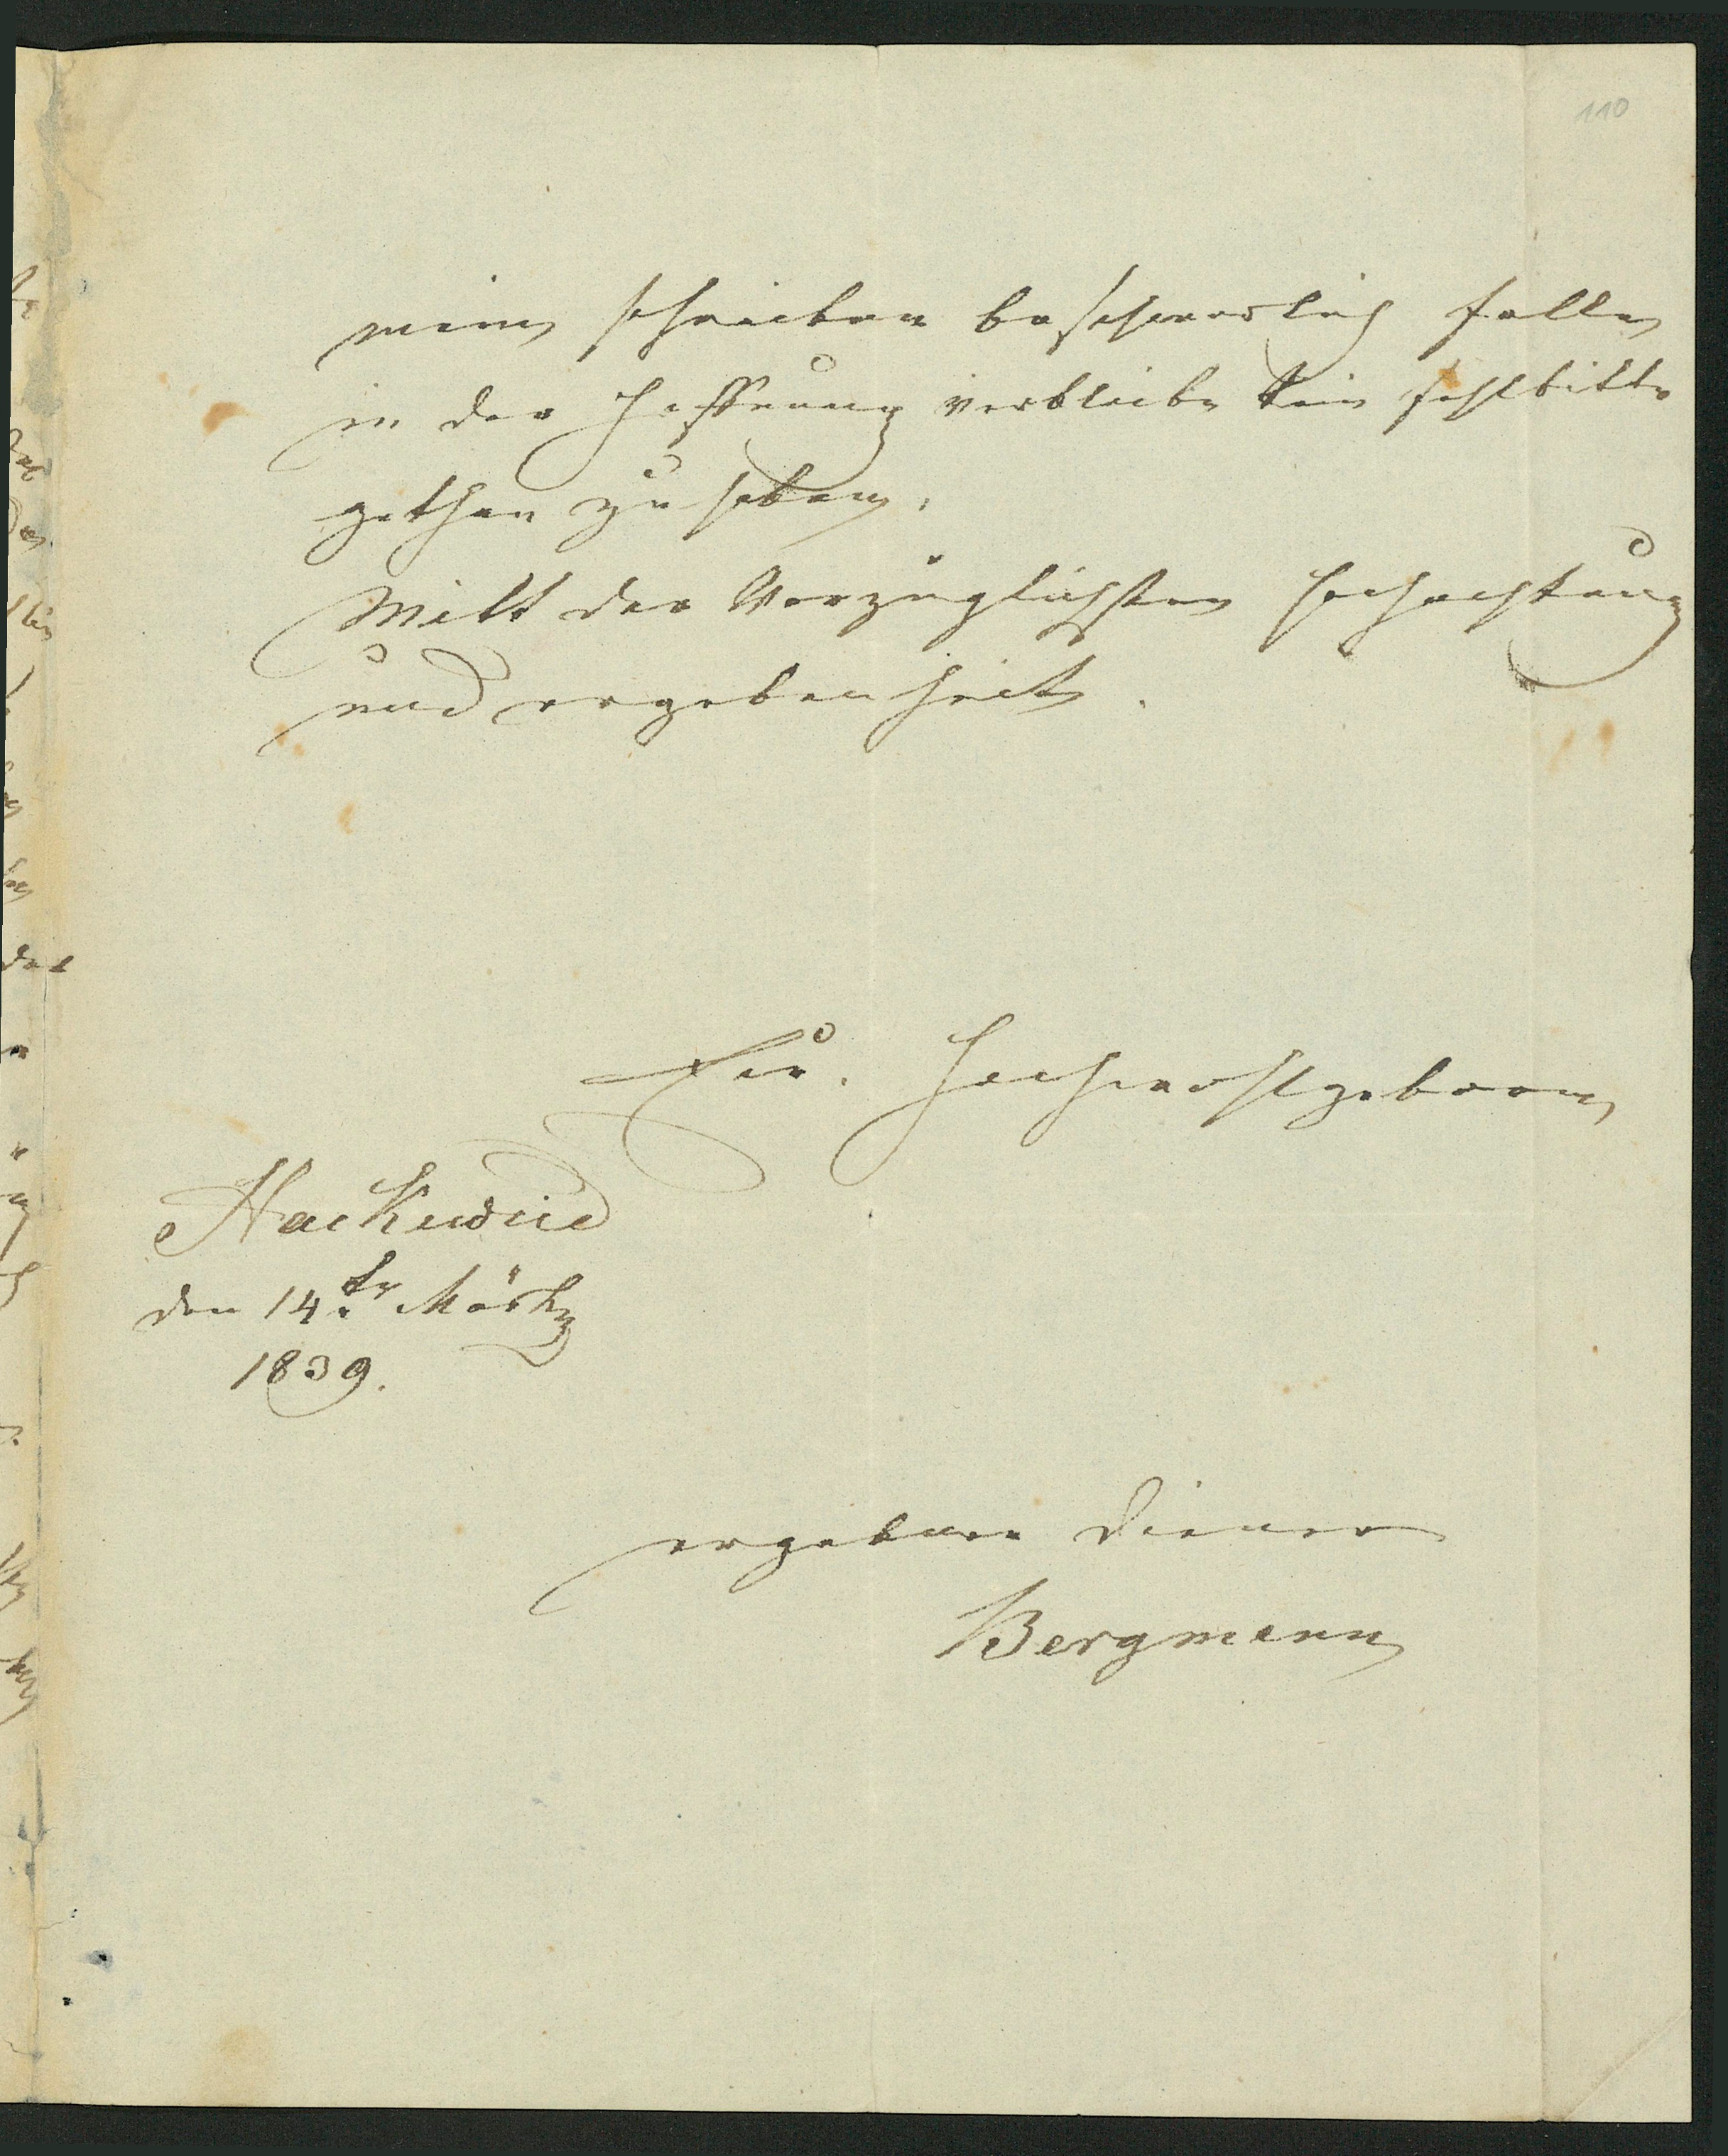 110
mein schreiben beschwerlich falle,
in der Hoffnung verbleibe kein fehlbitte
gethan zu haben.
Mitt der Vorzüglichsten Hochachtung
und ergebenheit.
Eur. Hochwohlgeboren
den 14.tr Märtz
1839.
ergebner Diener
Bergmann